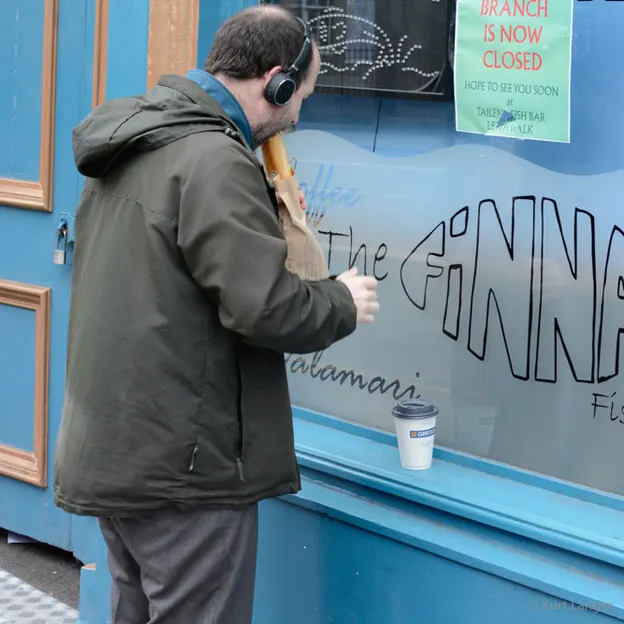 BRANCH
IS NOW
CLOSED
HOPE TO SEE YOU SOON
at
FISH BAR
WALK
Coffee
The FINNA
Calamari
Fis
GREGGS